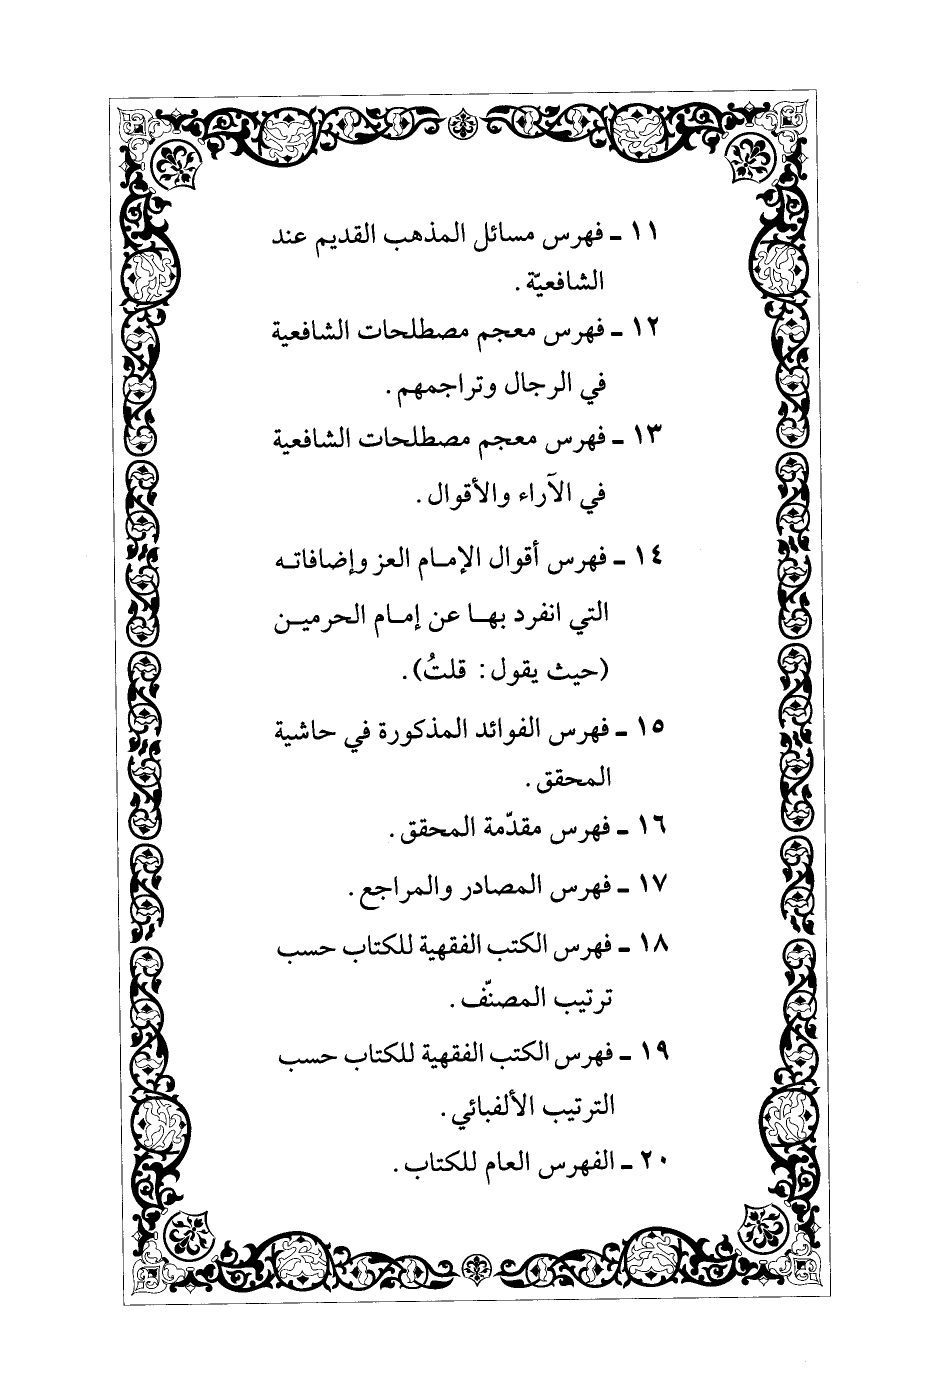 ١١ ـ فهرس مسائل المذهب القديم عند
الشافعيّة .
١٢ ـ فهرس معجم مصطلحات الشافعية
في الرجال وتراجمهم .
١٣ ـ فهرس معجم مصطلحات الشافعية
في الآراء والأقوال .
١٤ ـ فهرس أقوال الإمـام العز وإضافاتـه
التي انفرد بهـا عن إمـام الحرميـن
(حيث يقول : قلتُ) .
١٥ ـ فهرس الفوائد المذكورة في حاشية
المحقق .
١٦ ـ فهرس مقدّمة المحقق .
١٧ ـ فهرس المصادر والمراجع .
١٨ ـ فهرس الكتب الفقهية للكتاب حسب
ترتيب المصنّف .
١٩ ـ فهرس الكتب الفقهية للكتاب حسب
الترتيب الألفبائي .
٢٠ ـ الفهرس العام للكتاب .